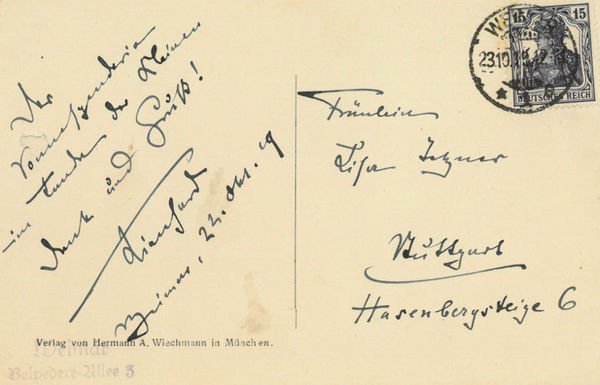 Der
Sonnespenderin
im Lande der Kleinen
Dank und Gruß!
Lienhard
Weimar, 22. Okt. 19
Fräulein
Lisa Tetzner
Stuttgart
Hasenbergsteige 6
15 15
DEUTSCHES REICH
23.10.19
Verlag von Hermann A. Wiechmann in München.
Weimar
Belvedere-Allee 3